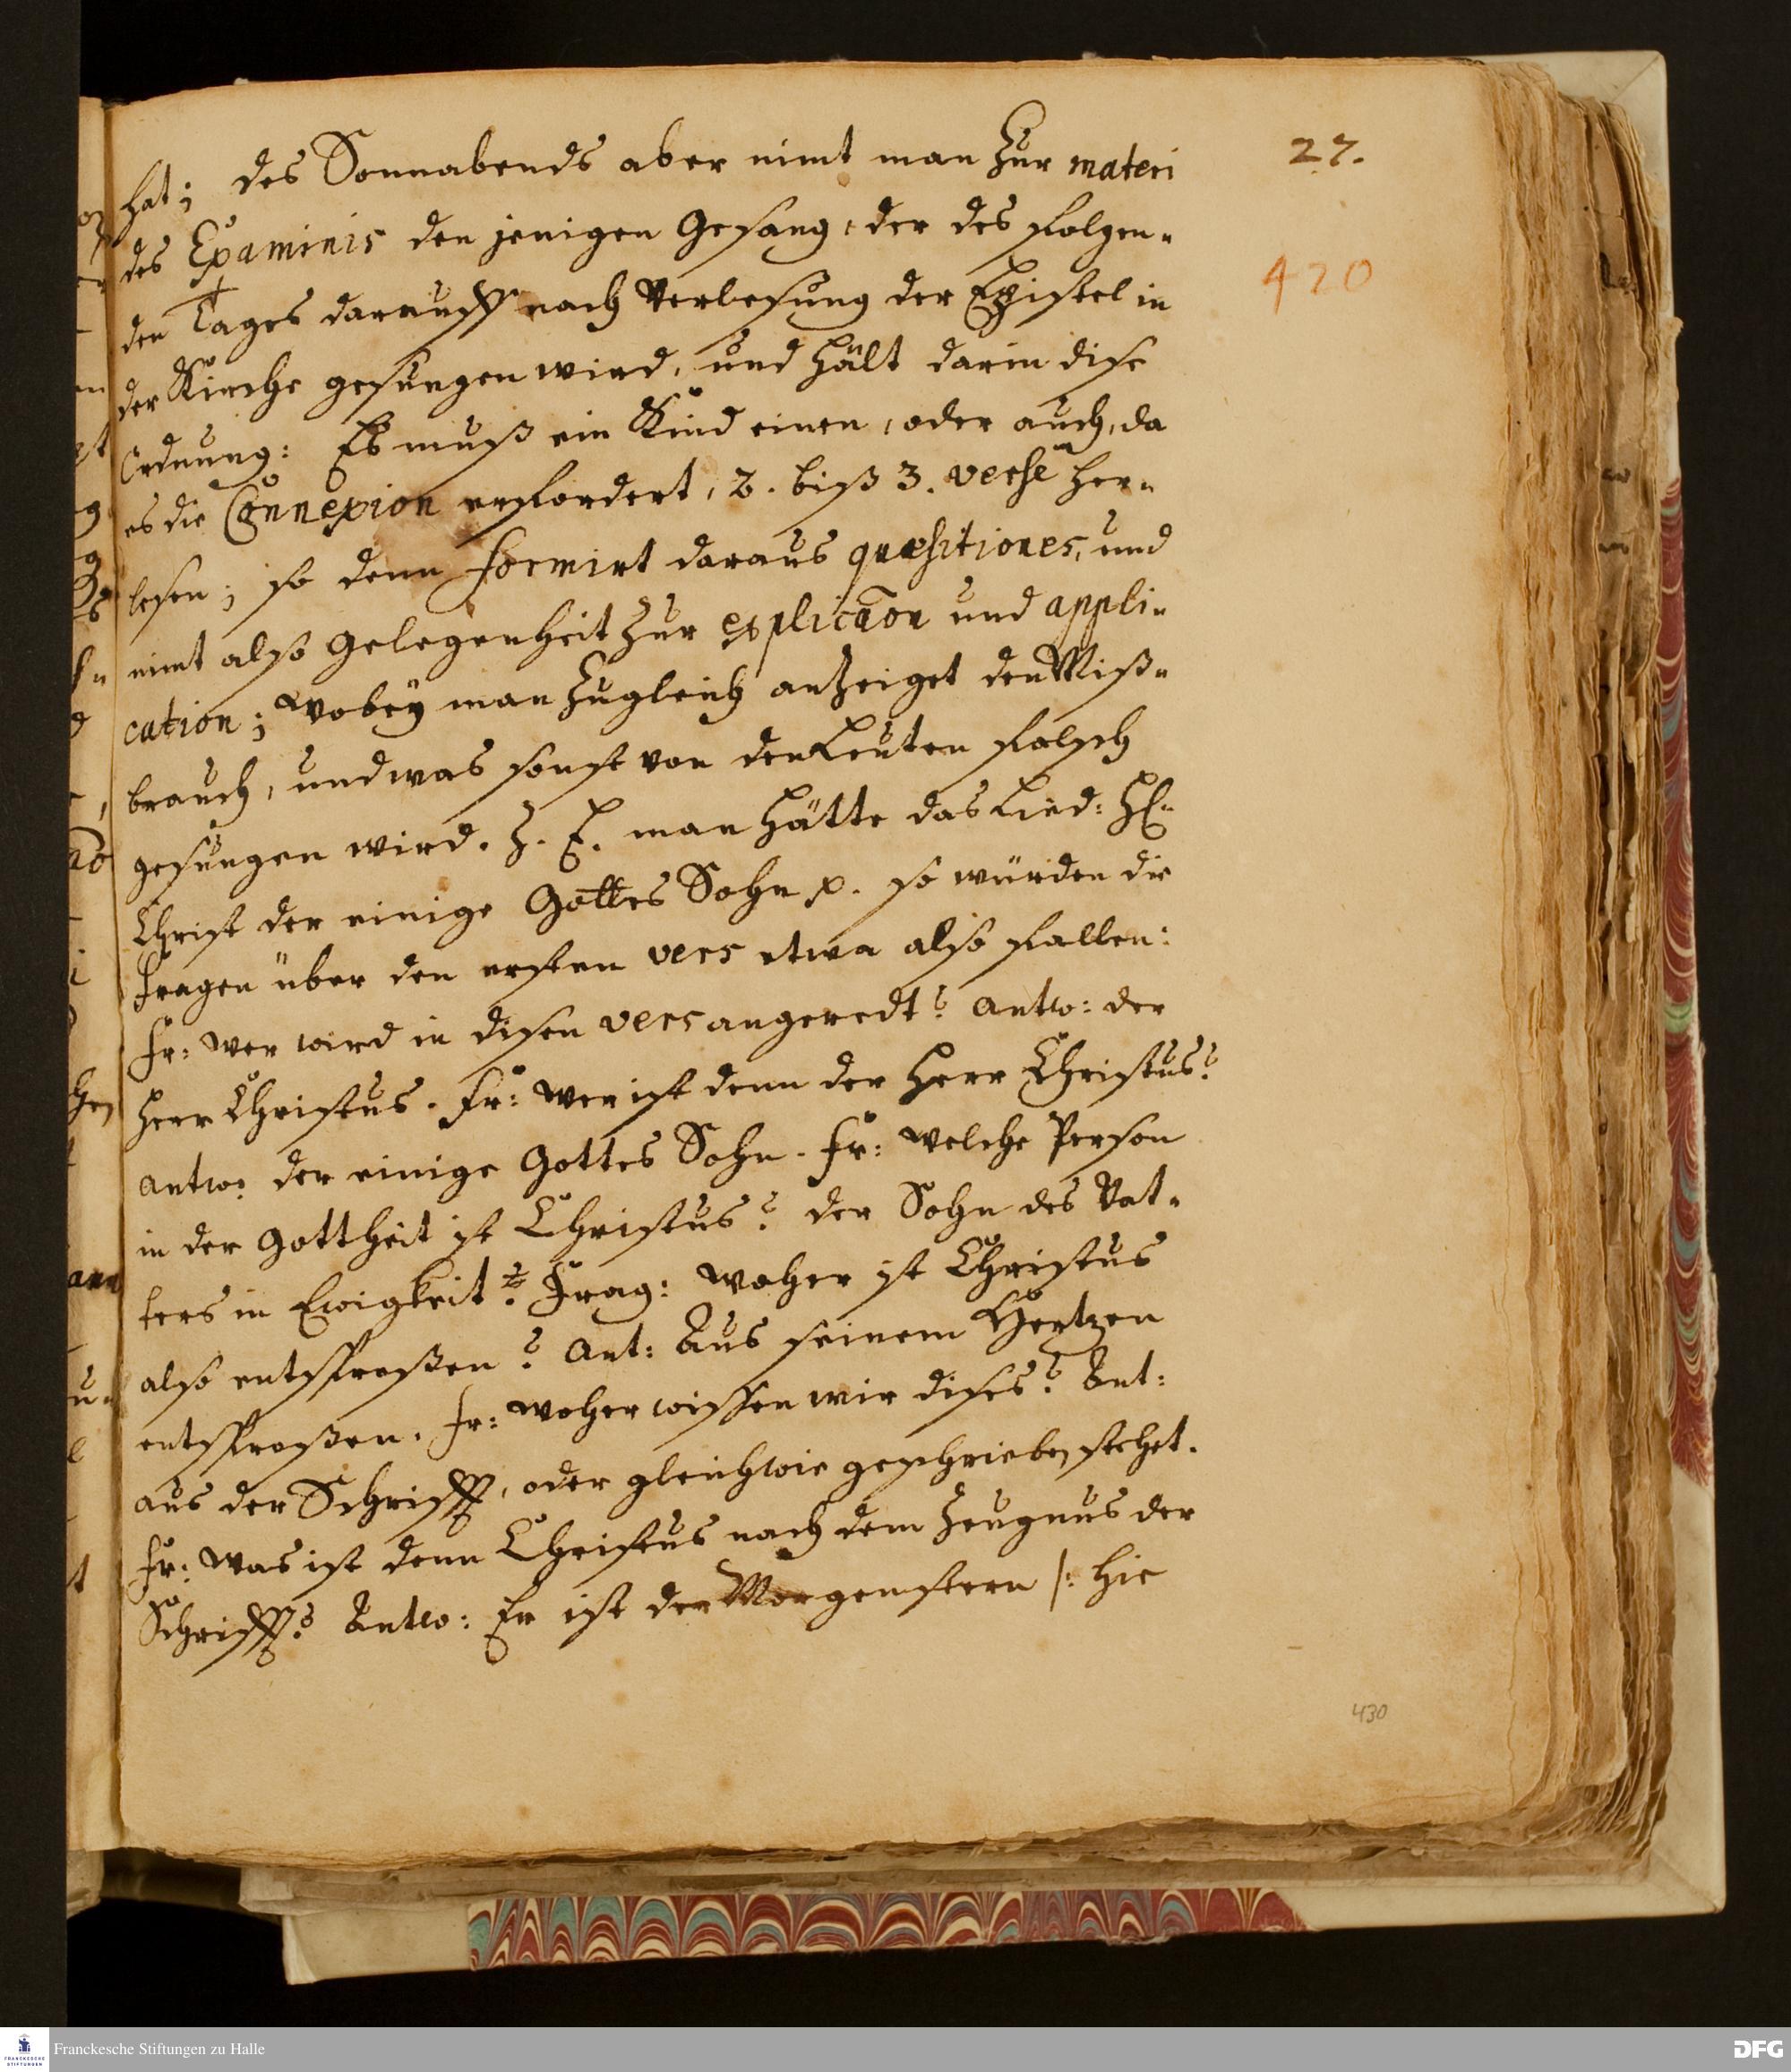 27.
420
hat; des Sonnabends aber nimt man zur materi
des Examinis den jenigen Gesang, der des folgen-
den Tages darauff nach Verlesung der Epistel in
der Kirche gesungen wird, und hält darin dise
Ordnung: Es muß ein Kind einen, oder auch, da
es die Connexion erfordert, 2. biß 3. verse her-
lesen; so denn formirt daraus quæstiones, und
nimt also gelegenheit zur explicaon und appli-
cation; Wobey man zugleich anzeiget den Miß-
brauch, und was sonst von den Leuten falsch
gesungen wird. Z. E. man hätte das Lied: H.
Christ der einige Gottes Sohn p. so würden die
fragen über den ersten vers etwa also fallen:
fr: Wer wird in disen vers angeredt? Antw: der
Herr Christus. fr: Wer ist denn der Herr Christus?
Antw: der einige Gottes Sohn. fr: Welche Person
in der Gottheit ist Christus? der Sohn des Vat-
ters in Ewigkeit. Frag: Woher ist Christus
also entsproßen? Ant: Aus seinem Hertzen
entsproßen. fr: Woher wissen wir dises? Ant:
aus der Schrifft, oder gleichwie geschrieben stehet.
fr: Was ist denn Christus nach dem Zeugnus der
Schrifft? Antw: Er ist der Morgenstern /: hie
430
Franckesche Stiftungen zu Halle
DFG